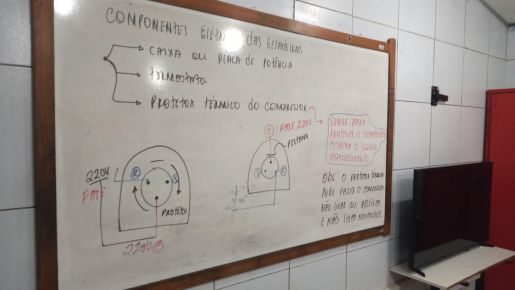 COMPONENTES ELÉTRICOS DAS GELADEIRAS
CAIXA OU PLACA DE POTÊNCIA
TERMOSTATO
PROTETOR TÉRMICO DO COMPRESSOR
SERVE PARA
PROTEGER O COMPRESSOR
CONTRA O SOBRE
AQUECIMENTO
OBS: O PROTETOR TÉRMICO
PODE FAZER O COMPRESSOR
NÃO LIGAR OU DESLIGAR
E NÃO LIGAR NOVAMENTE
C: FASE 220V
220V
FASE
R
S
PROTETOR
220V C